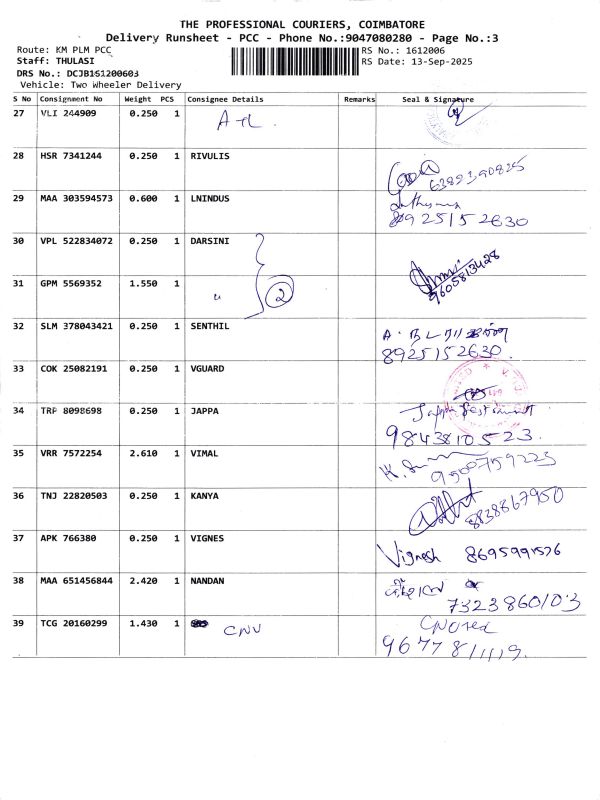 THE PROFESSIONAL COURIERS, COIMBATORE
Delivery Runsheet - PCC - Phone No.:9047080280 - Page No.:3
Route: KM PLM PCC
RS No.: 1612006
Staff: THULASI
RS Date: 13-Sep-2025
DRS No.: DCJB1S1200603
Vehicle: Two Wheeler Delivery
S No Consignment No Weight PCS Consignee Details Remarks Seal & Signature
27 VLI 244909 0.250 1
28 HSR 7341244 0.250 1 RIVULIS
6389390825
29 MAA 303594573 0.600 1 LNINDUS
8925152630
30 VPL 522834072 0.250 1 DARSINI
31 GPM 5569352 1.550 1 " 2
9605813428
32 SLM 378043421 0.250 1 SENTHIL
8925152630
33 COK 25082191 0.250 1 VGUARD
34 TRP 8098698 0.250 1 JAPPA
9843810523
35 VRR 7572254 2.610 1 VIMAL
9500759223
36 TNJ 22820503 0.250 1 KANYA
8838867950
37 APK 766380 0.250 1 VIGNES Vignesh 8695991576
38 MAA 651456844 2.420 1 NANDAN
7323860103
39 TCG 20160299 1.430 1 CNU
9677811119.